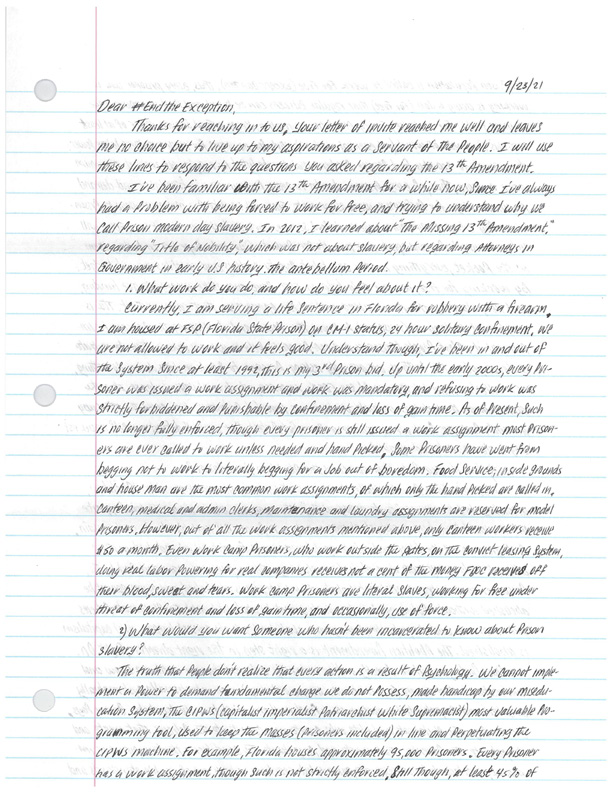 9/23/21
Dear #EndtheException,
Thanks for reaching in to us, your letter of invite reached me well and leaves
me no choice but to live up to my aspirations as a Servant of the People. I will use
these lines to respond to the questions you asked regarding the 13th Amendment.
I've been familiar with the 13th Amendment for a while now, Since I've always
had a Problem with being forced to work for free, and trying to understand why we
Call Prison modern day slavery. In 2012, I learned about "The Missing 13th Amendment,"
regarding "Title of Nobility," which was not about slavery, but regarding Attorneys in
Government in early U.S history. The antebellum Period.
1. What work do you do, and how do you feel about it?
Currently, I am serving a life Sentence in Florida for robbery with a firearm.
I am housed at FSP (Florida State Prison) on CM-1 status, 24 hour solitary confinement, we
are not allowed to work and it feels good. Understand though, I've been in and out of
the System Since at least 1992, this is my 3rd Prison bid. Up until the early 2000s, every Pri-
soner was issued a work assignment and work was mandatory, and refusing to work was
strictly forbiddened and Punishable by Confinement and loss of gain time. As of Present, Such
is no longer fully enforced, though every prisoner is still issued a work assignment most Prison-
ers are ever called to work unless needed and hand Picked. Some Prisoners have went from
begging not to work to literally begging for a Job out of boredom. Food Service; inside grounds
and house man are the most common work assignments, of which only the hand Picked are called in.
Canteen, medical and admin clerks, maintenance and laundry assignments are reserved for model
Prisoners. However, out of all the work assignments mentioned above, only Canteen workers receive
$50 a month. Even Work Camp Prisoners, who work outside the gates, on the convict leasing System,
doing real labor Powering for real companies receives not a cent of the money FDC received off
their blood, sweat and tears. Work camp Prisoners are literal Slaves, working for free under
threat of confinement and loss of gain time, and occasionally, use of force.
2) What would you want Someone who hasn't been incarcerated to know about Prison
slavery?
The truth that People don't realize that every action is a result of Psychology. We cannot imple-
ment a Power to demand fundamental change we do not Possess, made handicap by our misedu-
cation System, The CIPWS (capitalist imperialist Patriarchist White Supremacist) most valuable Pro-
gramming tool, used to keep the masses (prisoners included) in line and Perpetuating the
CIPWS machine. For example, Florida houses approximately 95,000 Prisoners. Every Prisoner
has a work assignment, though such is not strictly enforced. Still Though, at least 45% of